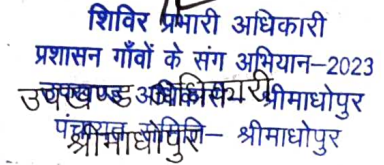 शिविर प्रभारी अधिकारी
प्रशासन गाँवों के संग अभियान–2023
उपखण्ड अधिकारी– श्रीमाधोपुर
उपखण्ड अधिकारी
पंचायत समिति– श्रीमाधोपुर
श्रीमाधोपुर